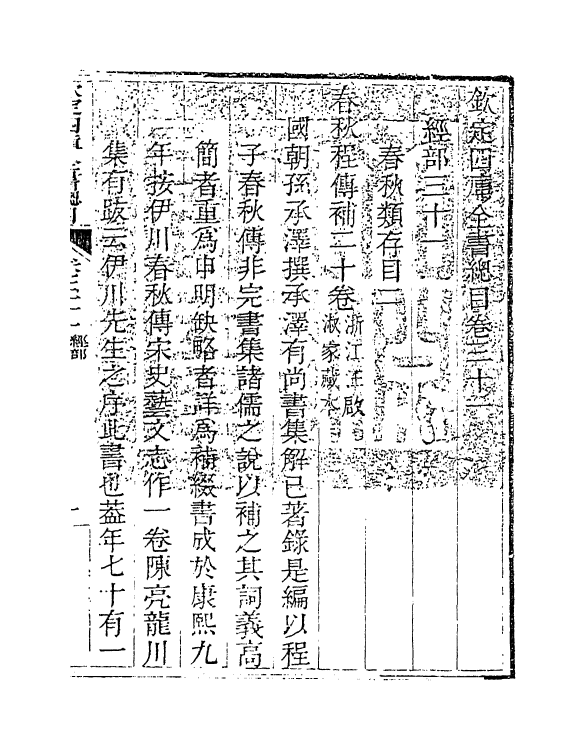 欽定四庫全書總目卷三十一
經部三十一
春秋類存目二
春秋程傳補二十卷浙江汪啟淑家藏本
國朝孫承澤撰承澤有尚書集解已著錄是編以程
子春秋傳非完書集諸儒之說以補之其詞義高
簡者重為申明缺略者詳為補綴書成於康熙九
年按伊川春秋傳宋史藝文志作一卷陳亮龍川
集有跋云伊川先生之序此書也葢年七十有一
經部